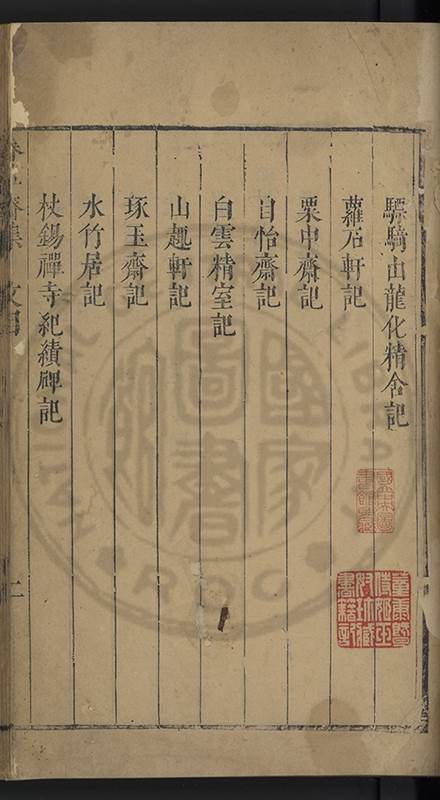 驃騎山龍化精舍記
蘿石軒記
栗中齋記
自怡齋記
白雲精室記
山趣軒記
琢玉齋記
水竹居記
杖錫禪寺紀績碑記
二